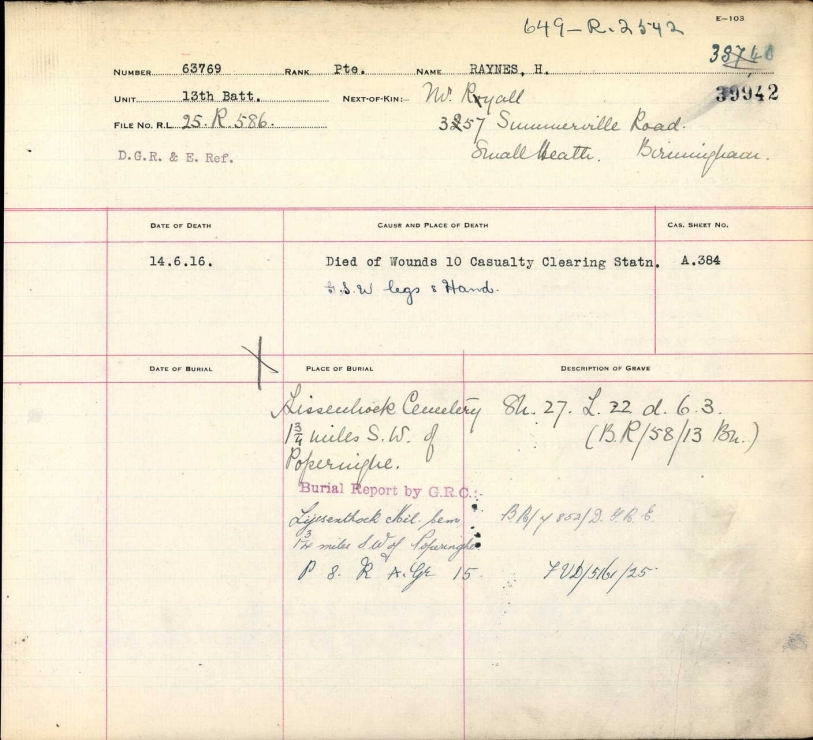 649-R.2542
E-103
NUMBER 63769 RANK Pte. NAME RAYNES, H.
39942
UNIT 13th Batt. NEXT-OF-KIN:- Mr. Royall
FILE NO. R.L. 25.R.586. 3257 Summerville Road.
D.G.R. & E. Ref. Small Heath. Birmingham.
DATE OF DEATH CAUSE AND PLACE OF DEATH CAS. SHEET NO.
14.6.16. Died of Wounds 10 Casualty Clearing Statn. A.384
G.S.W legs & Hand.
DATE OF BURIAL PLACE OF BURIAL DESCRIPTION OF GRAVE
Lissenhoek Cemetery Sh. 27. L. 22 d. 6.3.
1 3/4 miles S.W. of (B.R/58/13 Bn.)
Poperinghe.
Burial Report by G.R.C.:-
Lijssenthoek Mil. Cem
1 3/4 miles S.W of Poperinghe
P 8. R A. Gr 15.